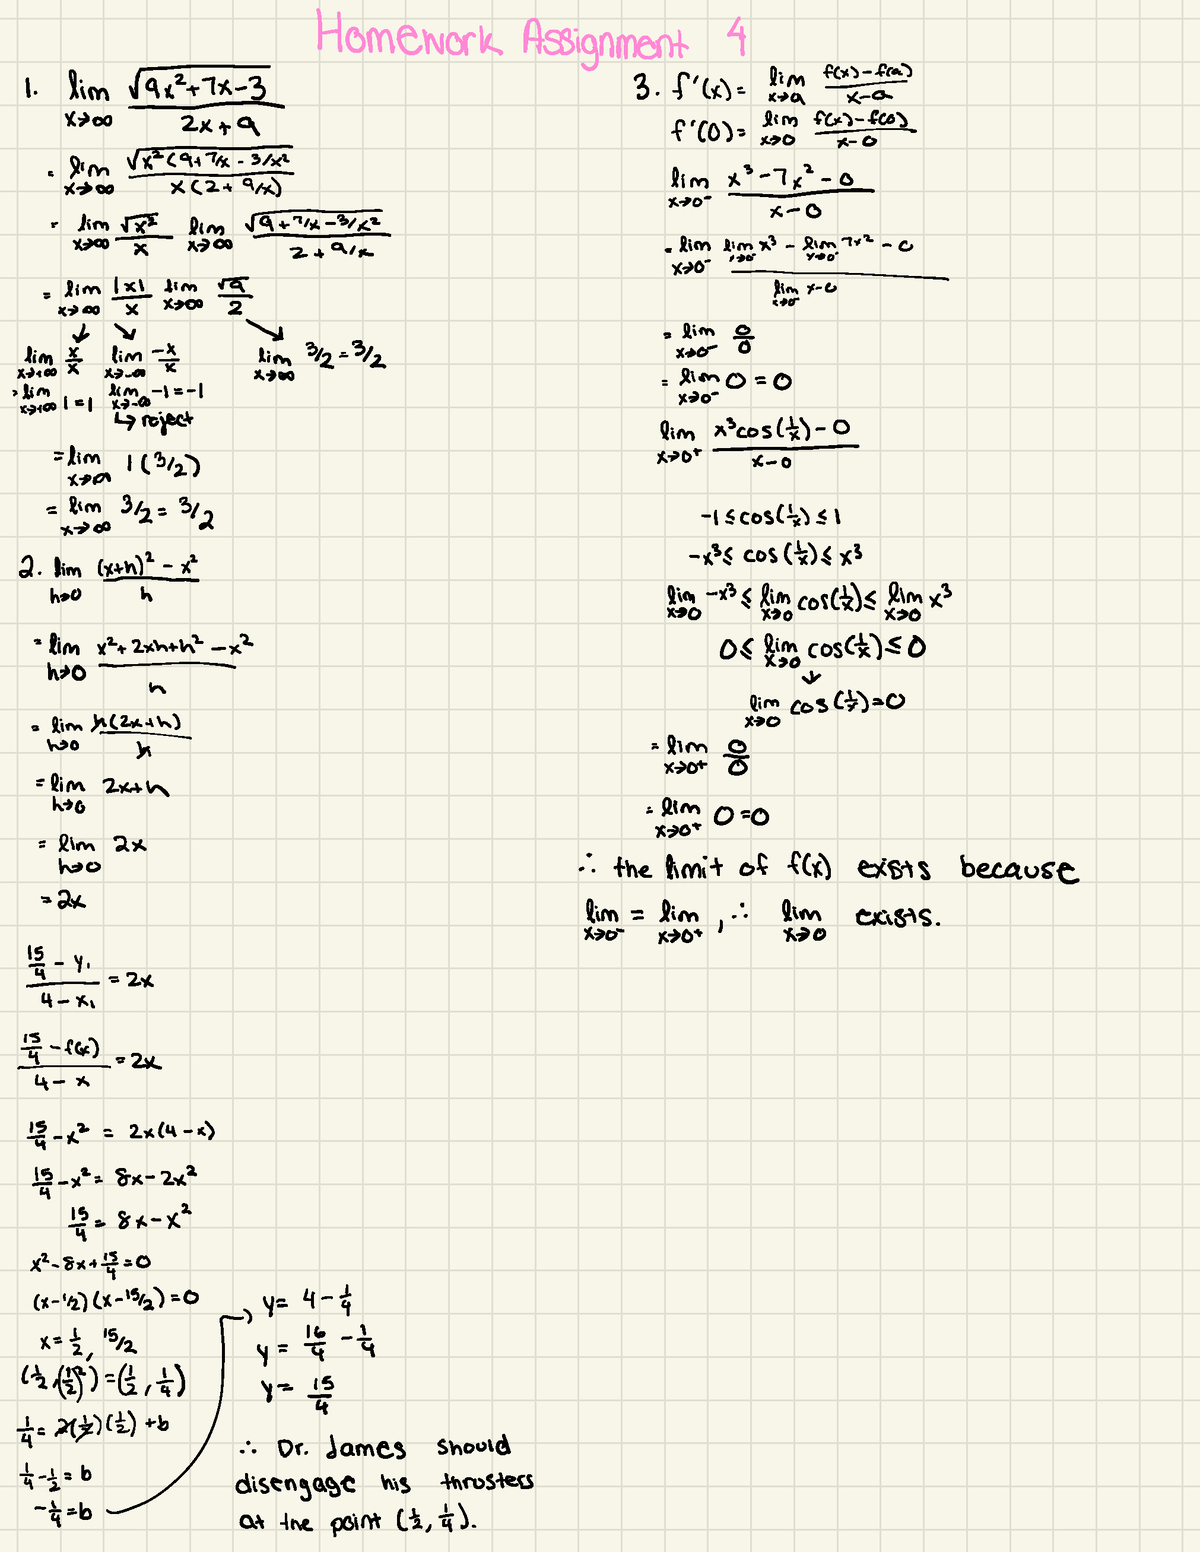 Homework Assignment 4
1. lim x→∞ √(9x²+7x-3) / 2x+9
= lim x→∞ √(x²(9+7/x-3/x²) / x(2+9/x)
= lim x→∞ √x² / x lim x→∞ √(9+7/x-3/x²) / 2+9/x
= lim x→∞ |x| / x lim x→∞ √9 / 2
lim x→+∞ x/x lim x→-∞ -x/x lim x→∞ 3/2 = 3/2
= lim x→+∞ 1 = 1 lim x→-∞ -1 = -1
↳ reject
= lim x→∞ 1(3/2)
= lim x→∞ 3/2 = 3/2
2. lim h→0 (x+h)² - x² / h
= lim h→0 x²+2xh+h²-x² / h
= lim h→0 h(2x+h) / h
= lim h→0 2x+h
= lim h→0 2x
= 2x
15/4 - y₁ / 4-x₁ = 2x
15/4 - f(x) / 4-x = 2x
15/4 - x² = 2x(4-x)
15/4 - x² = 8x-2x²
15/4 = 8x-x²
x²-8x+15/4=0
(x-1/2)(x-15/2)=0
x=1/2, 15/2
(1/2,(1/2)²)=(1/2,1/4)
1/4 = 2(1/2)(1/2)+b
1/4-1/2=b
-1/4=b
y= 4-1/4
y= 16/4 - 1/4
y= 15/4
∴ Dr. James should
disengage his thrusters
at the point (1/2,1/4).
3. f'(x)= lim x→a f(x)-f(a) / x-a
f'(0)= lim x→0 f(x)-f(0) / x-0
lim x→0⁻ x³-7x²-0 / x-0
= lim x→0⁻ lim x→0⁻ x³ - lim x→0⁻ 7x² - 0 / lim x→0⁻ x-0
= lim x→0⁻ 0/0
= lim x→0⁻ 0=0
lim x→0⁺ x³cos(1/x)-0 / x-0
-1≤cos(1/x)≤1
-x³≤ cos(1/x)≤ x³
lim x→0 -x³ ≤ lim x→0 cos(1/x)≤ lim x→0 x³
0≤ lim x→0 cos(1/x)≤0
lim x→0 cos(1/x)=0
= lim x→0⁺ 0/0
= lim x→0⁺ 0=0
∴ the limit of f(x) exists because
lim x→0⁻ = lim x→0⁺, ∴ lim x→0 exists.